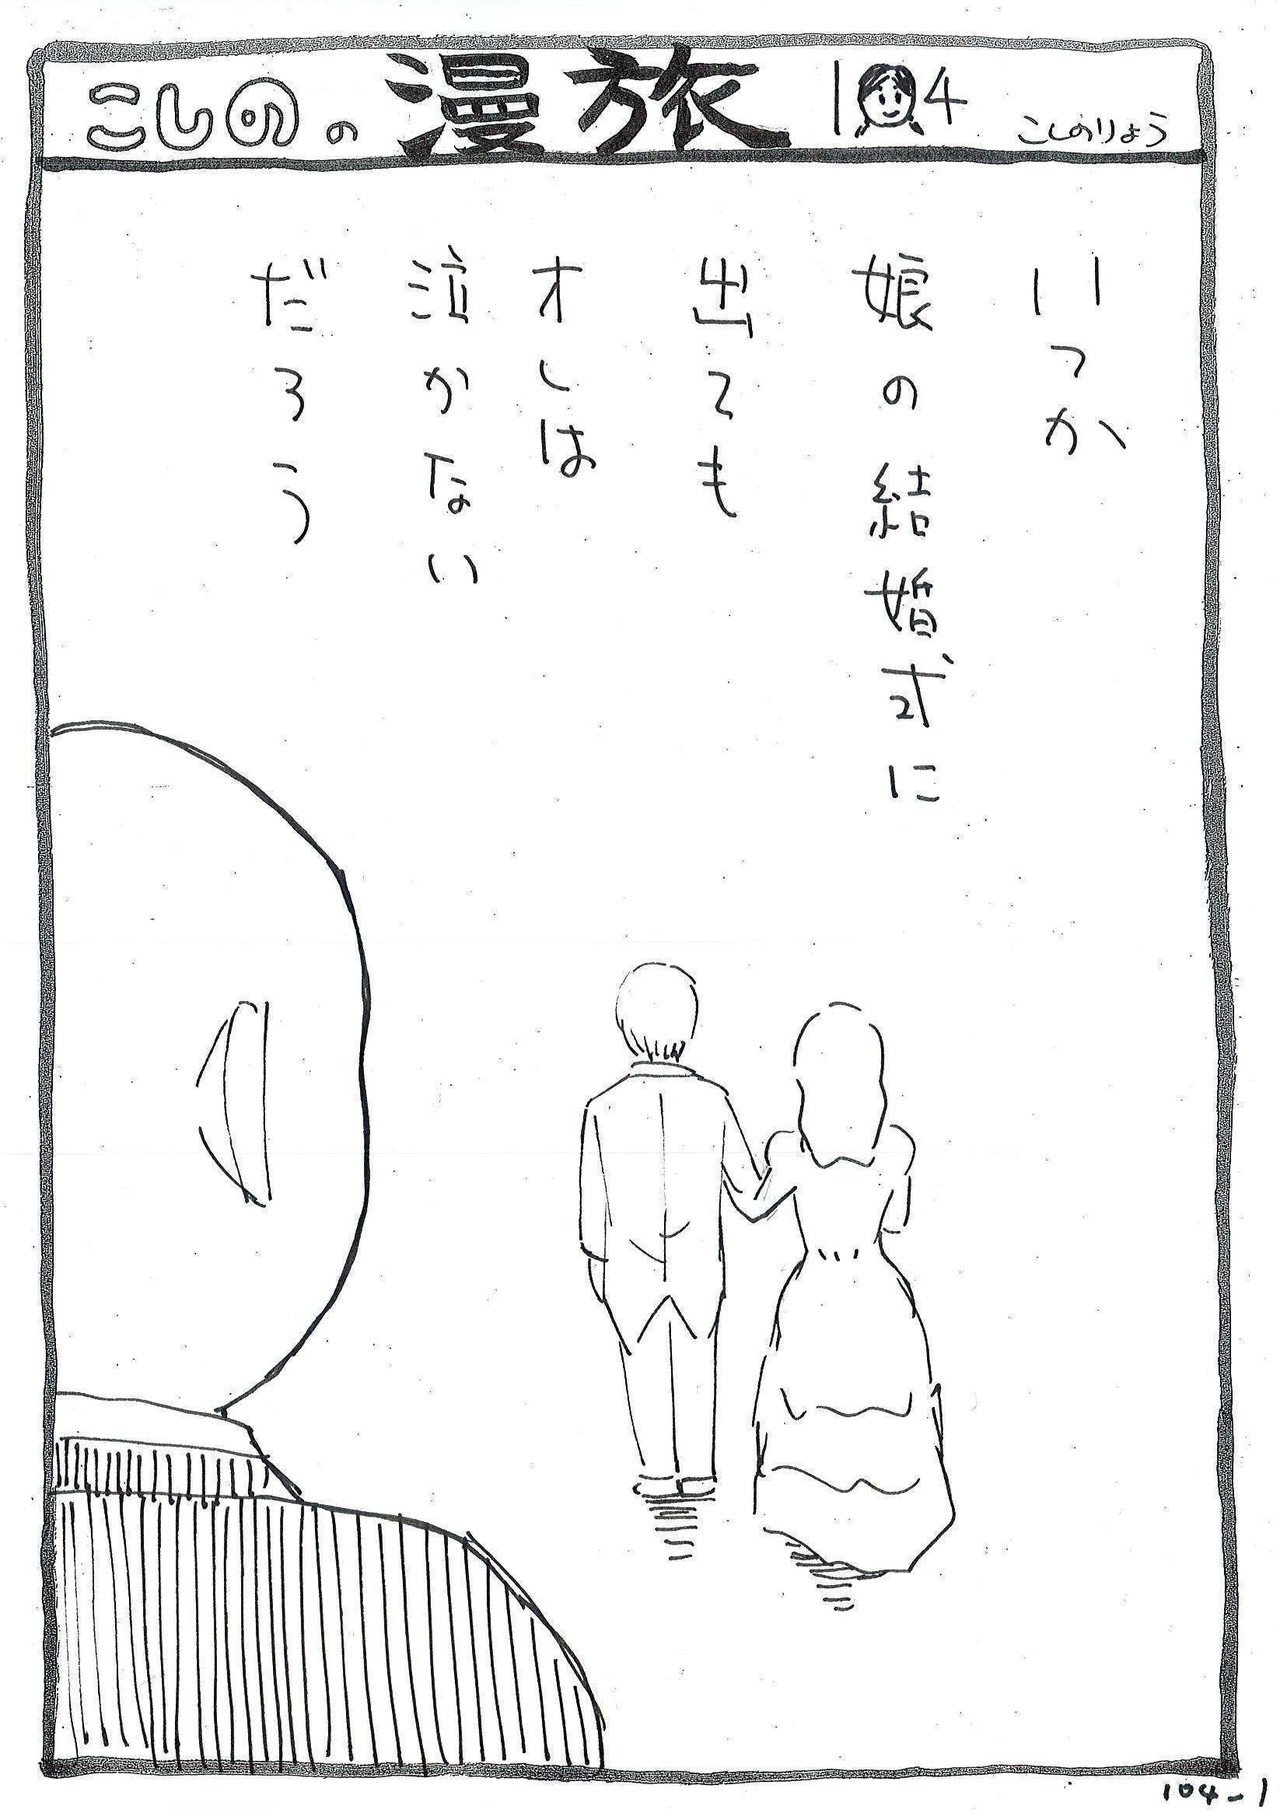 こしのの漫旅104
こしのりょう
いつか
娘の結婚式に
出ても
オレは
泣かない
だろう
104-1